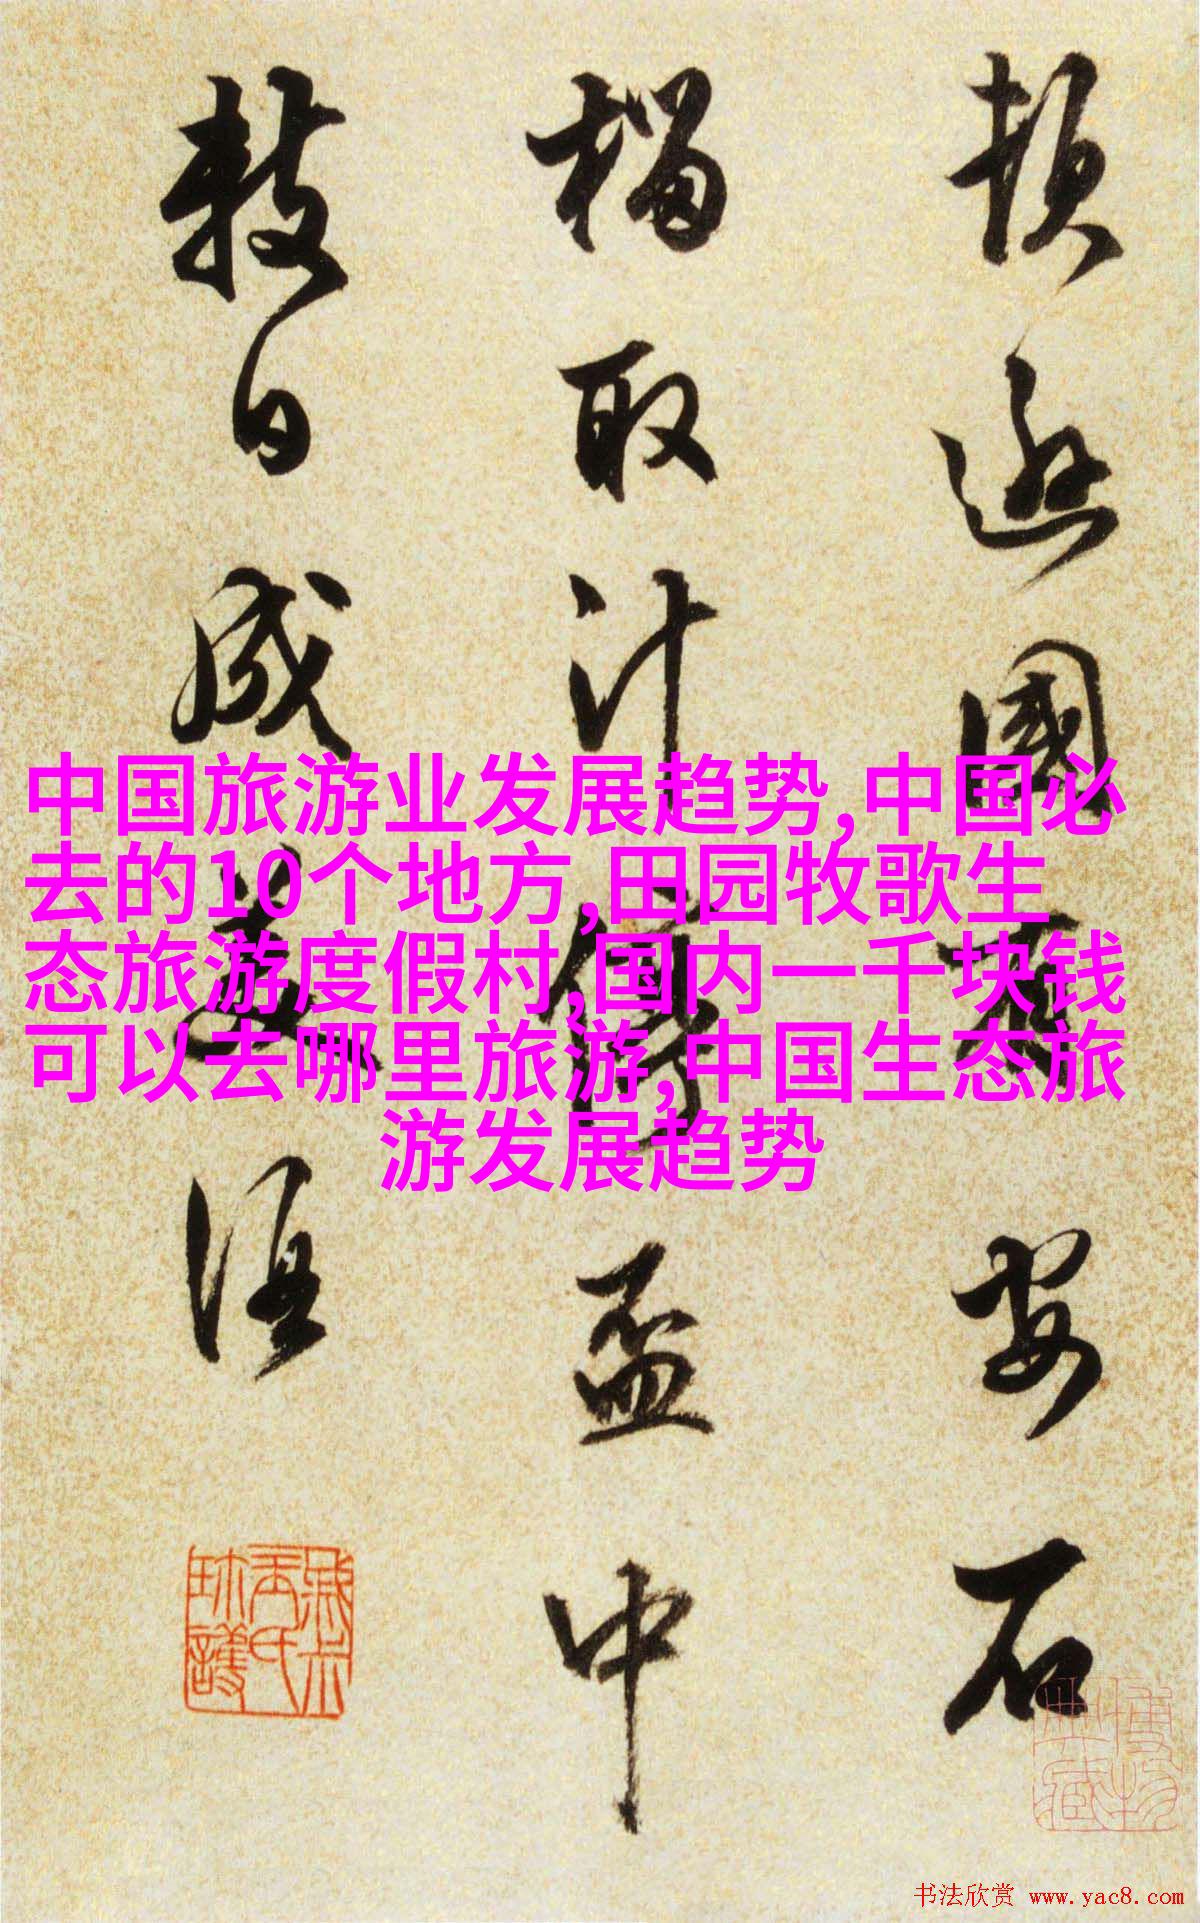 頓遜國有安石
榴取汁停盃中
數日成美酒
中国旅游业发展趋势,中国必
去的10个地方,田园牧歌生
态旅游度假村,国内一千块钱
可以去哪里旅游,中国生态旅
游发展趋势
书法欣赏 www.yac8.com